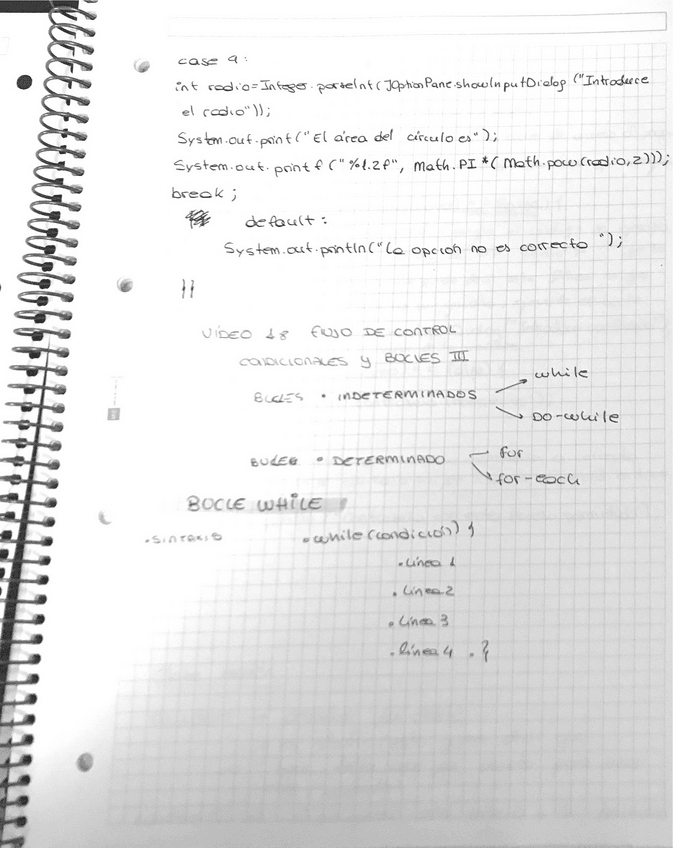 case 4:
int radio=Integer.parseInt(JOptionPane.showInputDialog ("Introduce
el radio"));
System.out.print("El área del círculo es");
System.out.printf ("%1.2f", Math.PI *( Math.pow(radio,2)));
break;
default:
System.out.println("la opción no es correcto ");
}}
VÍDEO 18 FLUJO DE CONTROL
CONDICIONALES y BUCLES III
BUCLES • INDETERMINADOS
while
DO-while
BUCLES • DETERMINADO
for
for-each
BUCLE WHILE
• SINTAXIS • while (condición) {
• Línea 1
• Línea 2
• Línea 3
• línea 4 . }